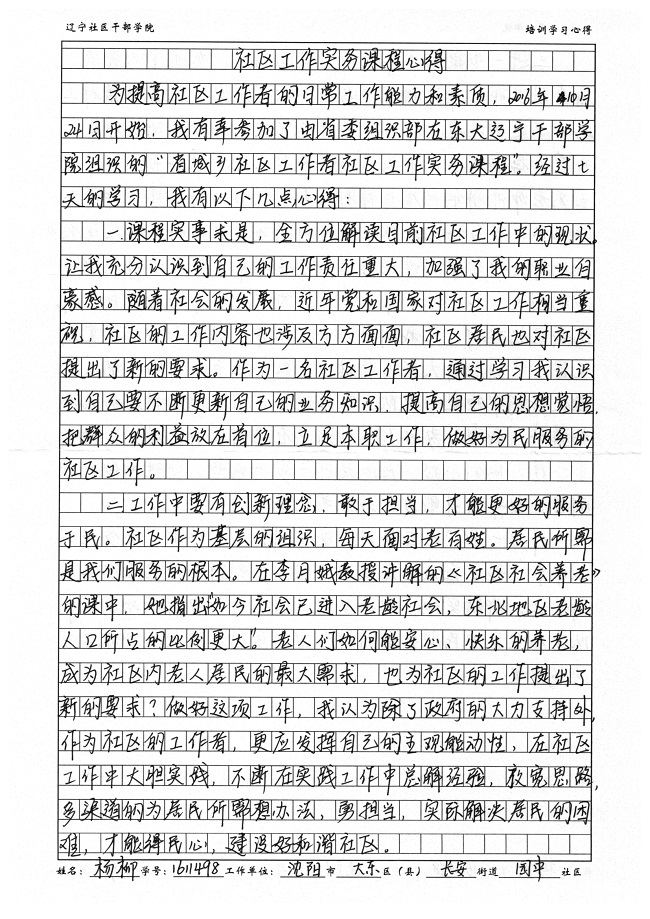 辽宁社区干部学院 培训学习心得
社区工作实务课程心得
为提高社区工作者的日常工作能力和素质，2016年10月
24日开始，我有幸参加了由省委组织部在东大辽宁干部学
院组织的“省城乡社区工作者社区工作实务课程”。经过七
天的学习，我有以下几点心得：
一.课程实事求是，全方位解读目前社区工作中的现状。
让我充分认识到自己的工作责任重大，加强了我的职业自
豪感。随着社会的发展，近年党和国家对社区工作相当重
视，社区的工作内容也涉及方方面面，社区居民也对社区
提出了新的要求。作为一名社区工作者，通过学习我认识
到自己要不断更新自己的业务知识，提高自己的思想觉悟，
把群众的利益放在首位，立足本职工作，做好为民服务的
社区工作。
二.工作中要有创新理念，敢于担当，才能更好的服务
于民。社区作为基层的组织，每天面对老百姓。居民所需
是我们服务的根本。在李月娥教授讲解的《社区社会养老》
的课中，她指出“如今社会已进入老龄社会，东北地区老龄
人口所占的比例更大”。老人们如何能安心、快乐的养老，
成为社区内老人居民的最大需求，也为社区的工作提出了
新的要求？做好这项工作，我认为除了政府的大力支持外，
作为社区的工作者，更应发挥自己的主观能动性，在社区
工作中大胆实践，不断在实践工作中总解经验，放宽思路，
多渠道的为居民所需想办法，勇担当，实际解决居民的困
难，才能得民心，建设好和谐社区。
姓名：杨柳 学号：1611498 工作单位：沈阳市 大东区（县） 长安街道 园中社区